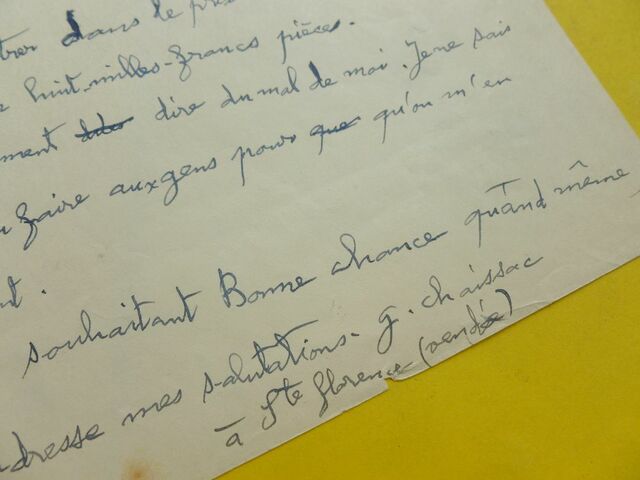 trer dans le pres
huit-milles-francs pièces.
ment dire du mal de moi. Je ne sais
faire aux gens pour que qu'on m'en
nt.
souhaitant Bonne chance quand même
dresse mes salutations. g. chaissac
à Ste florence (vendée)